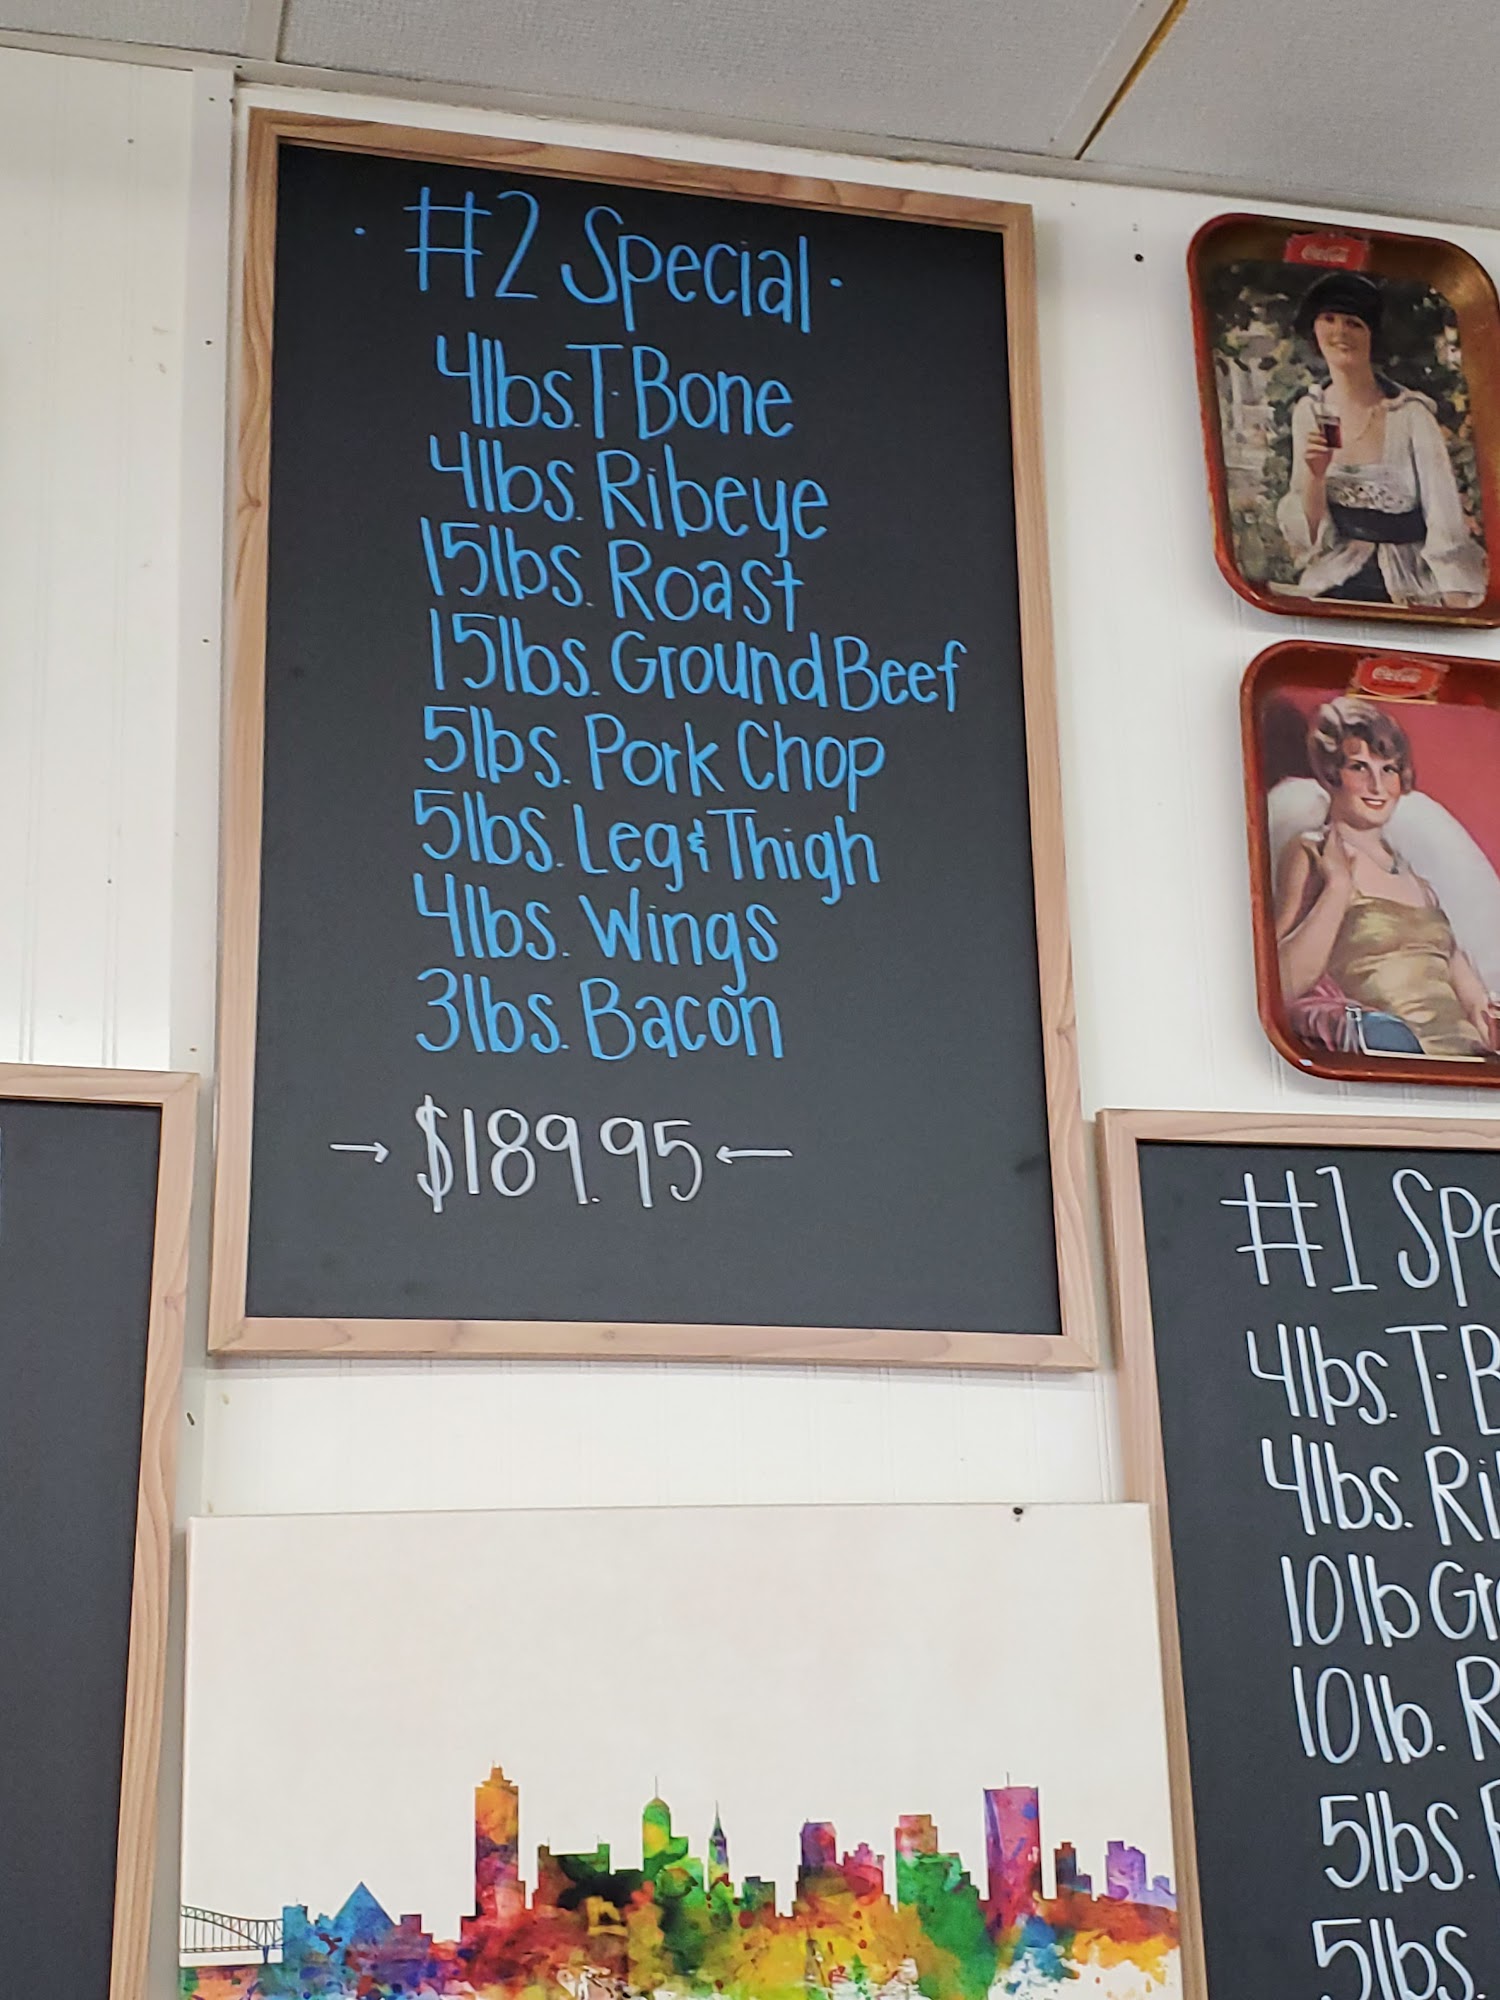 · #2 Special ·
4lbs. T-Bone
4lbs. Ribeye
15lbs. Roast
15lbs. Ground Beef
5lbs. Pork Chop
5lbs. Leg & Thigh
4lbs. Wings
3lbs. Bacon
→ $189.95 ←
Coca-Cola
Coca-Cola
#1 Spe
4lbs. T-B
4lbs. Ri
10lb Gr
10lb. R
5lbs.
5lbs.